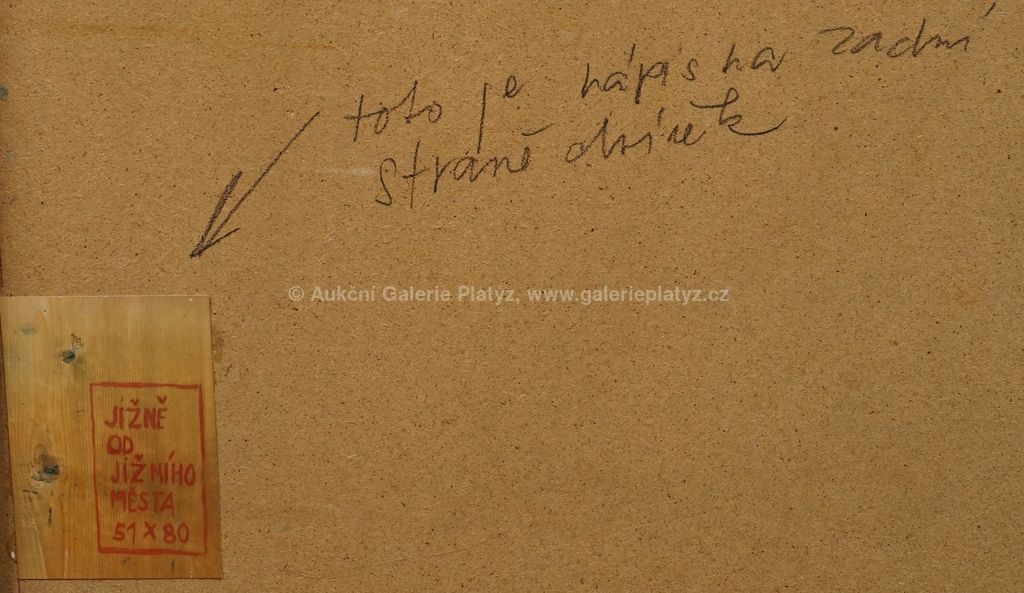 toto je nápis na zadní
straně
© Aukční Galerie Platýz, www.galerieplatyz.cz
JÍŽNĚ
OD
JÍŽNÍHO
MĚSTA
51 X 80